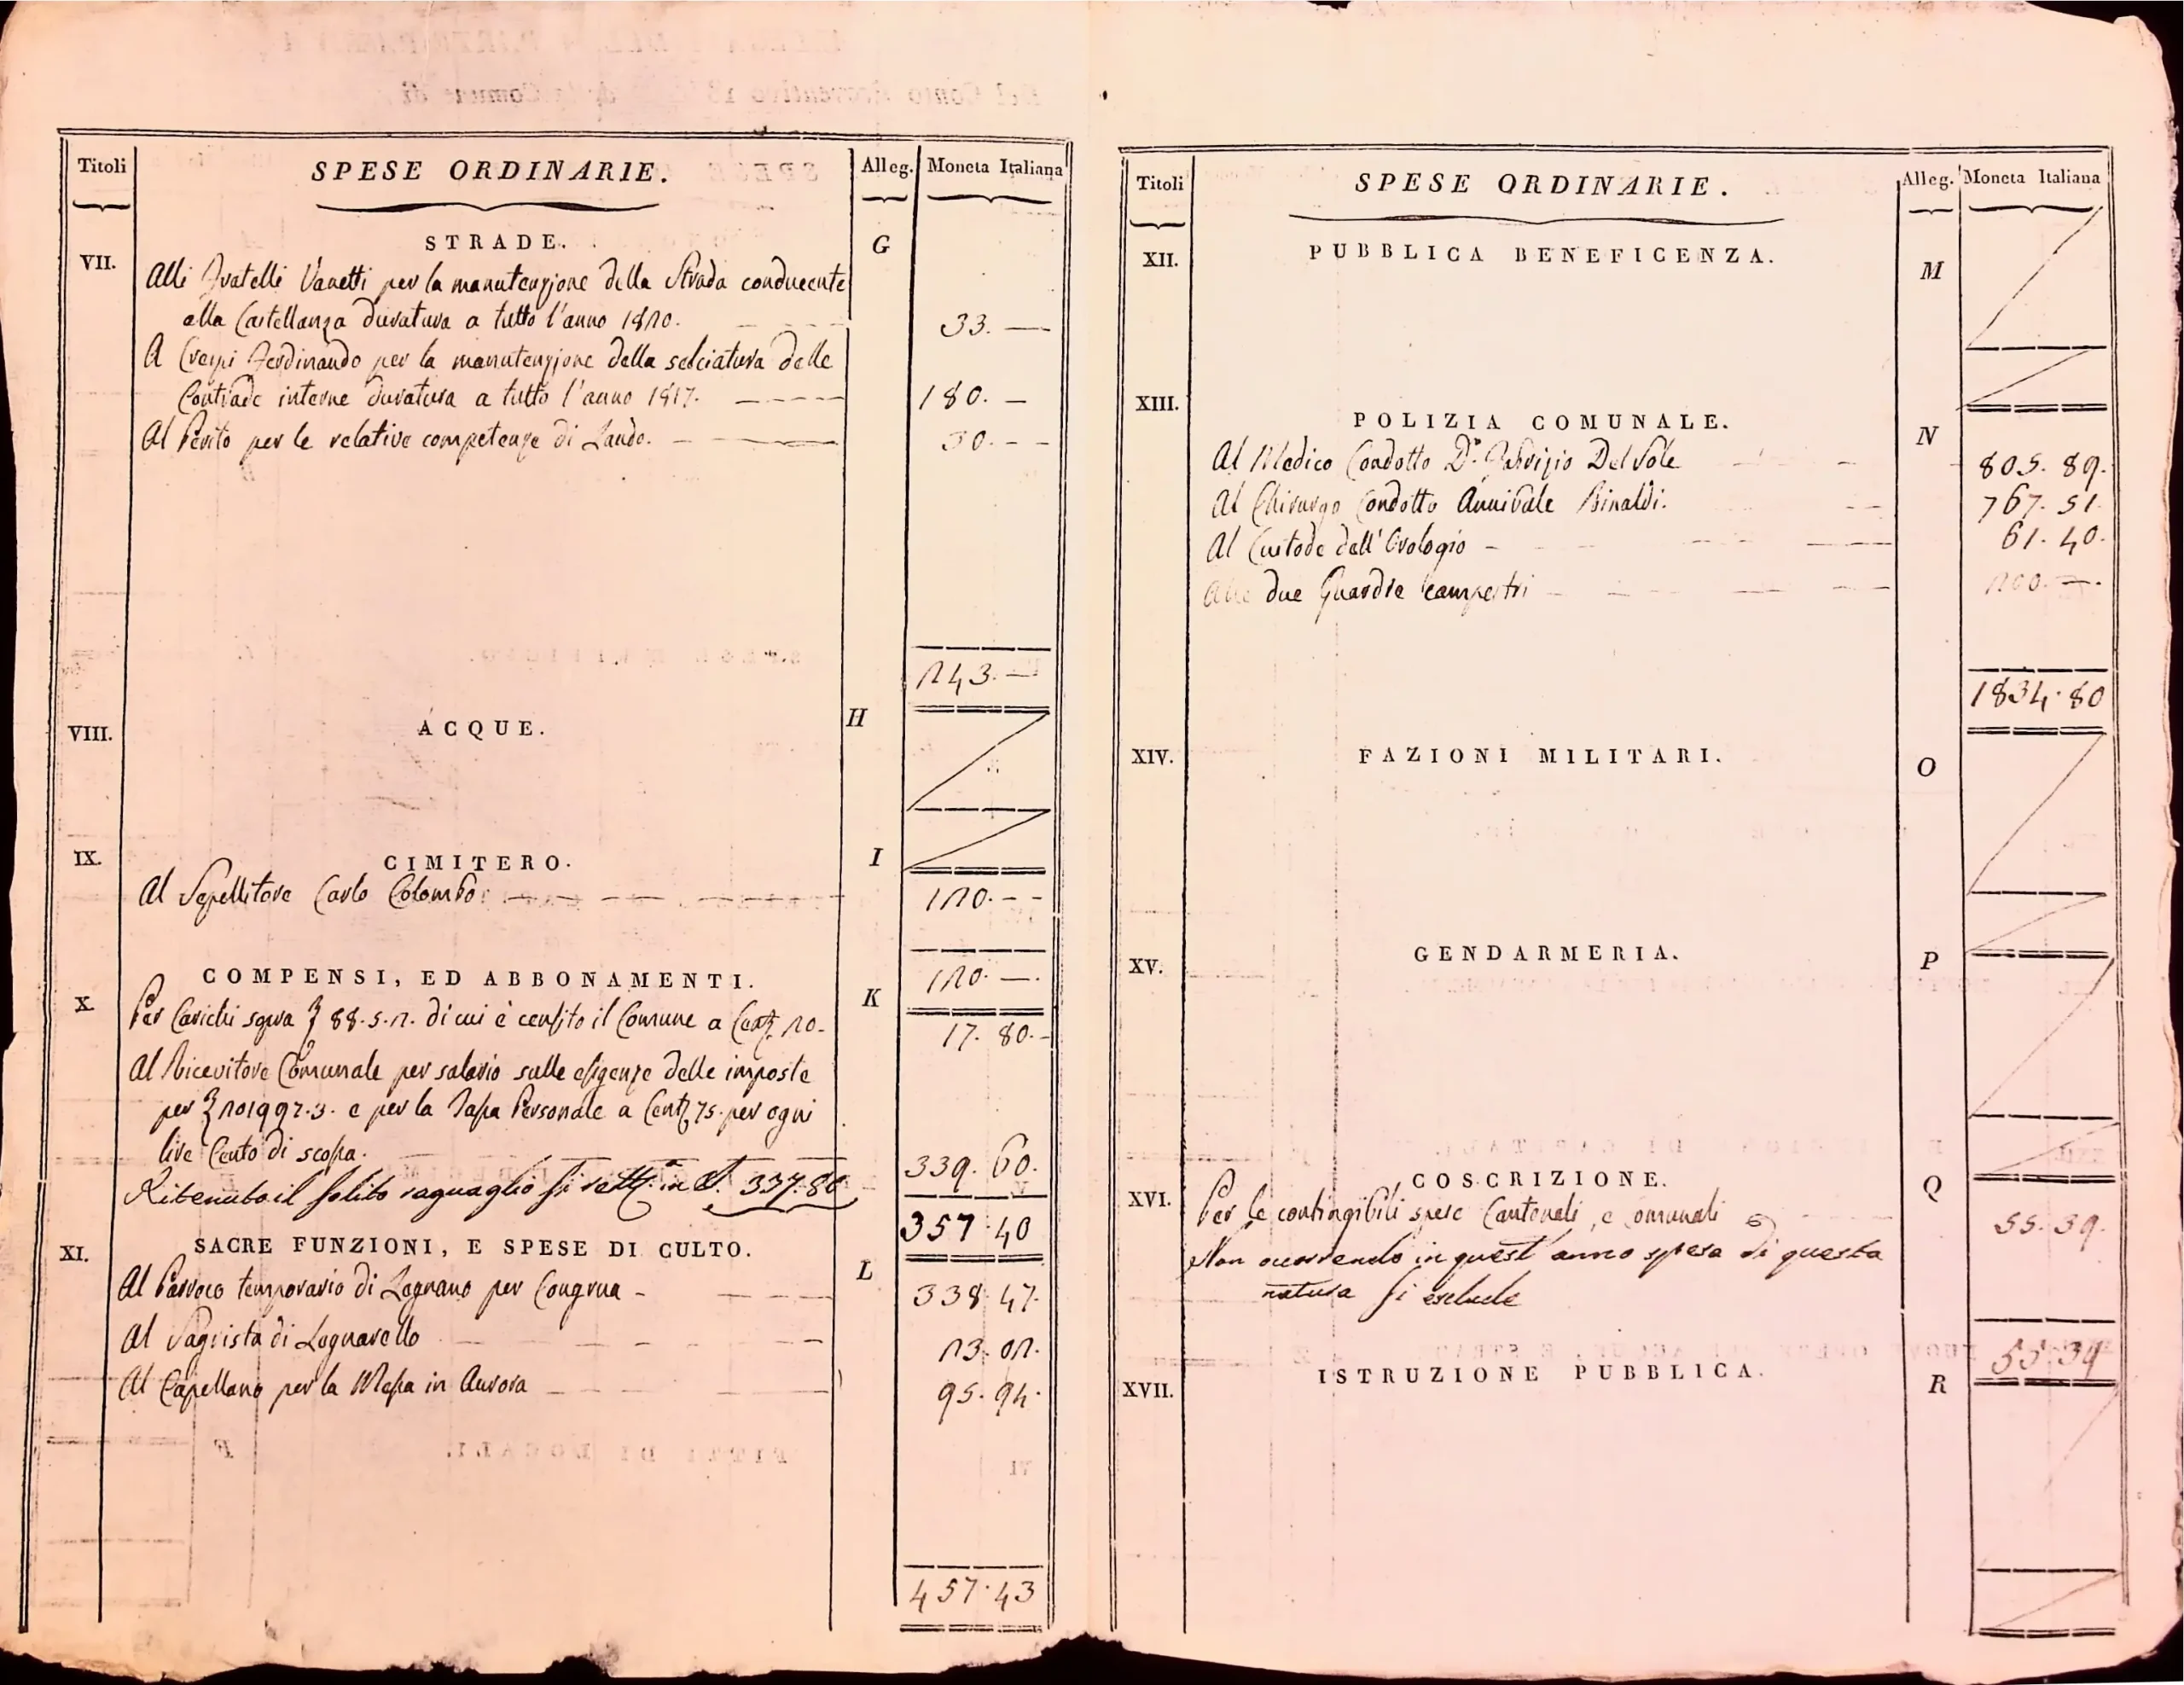 Titoli
SPESE ORDINARIE.
Alleg.
Moneta Italiana
VII.
STRADE.
G
Alli Fratelli Vanetti per la manutenzione della Strada conducente
alla Castellanza duratura a tutto l'anno 1820. 33. —
A Crespi Ferdinando per la manutenzione della selciatura delle
Contrade interne duratura a tutto l'anno 1817. 180. —
Al Perito per le relative competenze di Laudo. 30. - -
243. —
VIII.
ACQUE.
H
IX.
CIMITERO.
I
Al Sepellitore Carlo Colombo 120. - -
120. —
X.
COMPENSI, ED ABBONAMENTI.
K
Per Carichi sopra 88.5.2. di cui è censito il Comune a Cent. 20. 17. 80. -
Al Ricevitore Comunale per salario sulle esigenze delle imposte
per 201997.3. e per la Tassa Personale a Cent. 75. per ogni
lire Cento di scossa. 339. 60.
Ritenuto il solito raguaglio si rett. in 337.80
357.40
XI.
SACRE FUNZIONI, E SPESE DI CULTO.
L
Al Parroco temporario di Legnano per Congrua 338.47.
Al Sagrista di Legnarello 23.02.
Al Capellano per la Messa in Aurora 95.94.
457.43
Titoli
SPESE ORDINARIE.
Alleg.
Moneta Italiana
XII.
PUBBLICA BENEFICENZA.
M
XIII.
POLIZIA COMUNALE.
N
Al Medico Condotto D.r Fabrizio Del Sole 805. 89.
Al Chirurgo Condotto Annibale Binaldi. 767. 51.
Al Custode dell'Orologio 61. 40.
Alle due Guardie campestri 200. —.
1834.80
XIV.
FAZIONI MILITARI.
O
XV.
GENDARMERIA.
P
XVI.
COSCRIZIONE.
Q
Per le contingibili spese Cantonali, e omunali 55. 39.
Non occorrendo in quest'anno spesa di questa
natura si esclude
55.39
XVII.
ISTRUZIONE PUBBLICA.
R